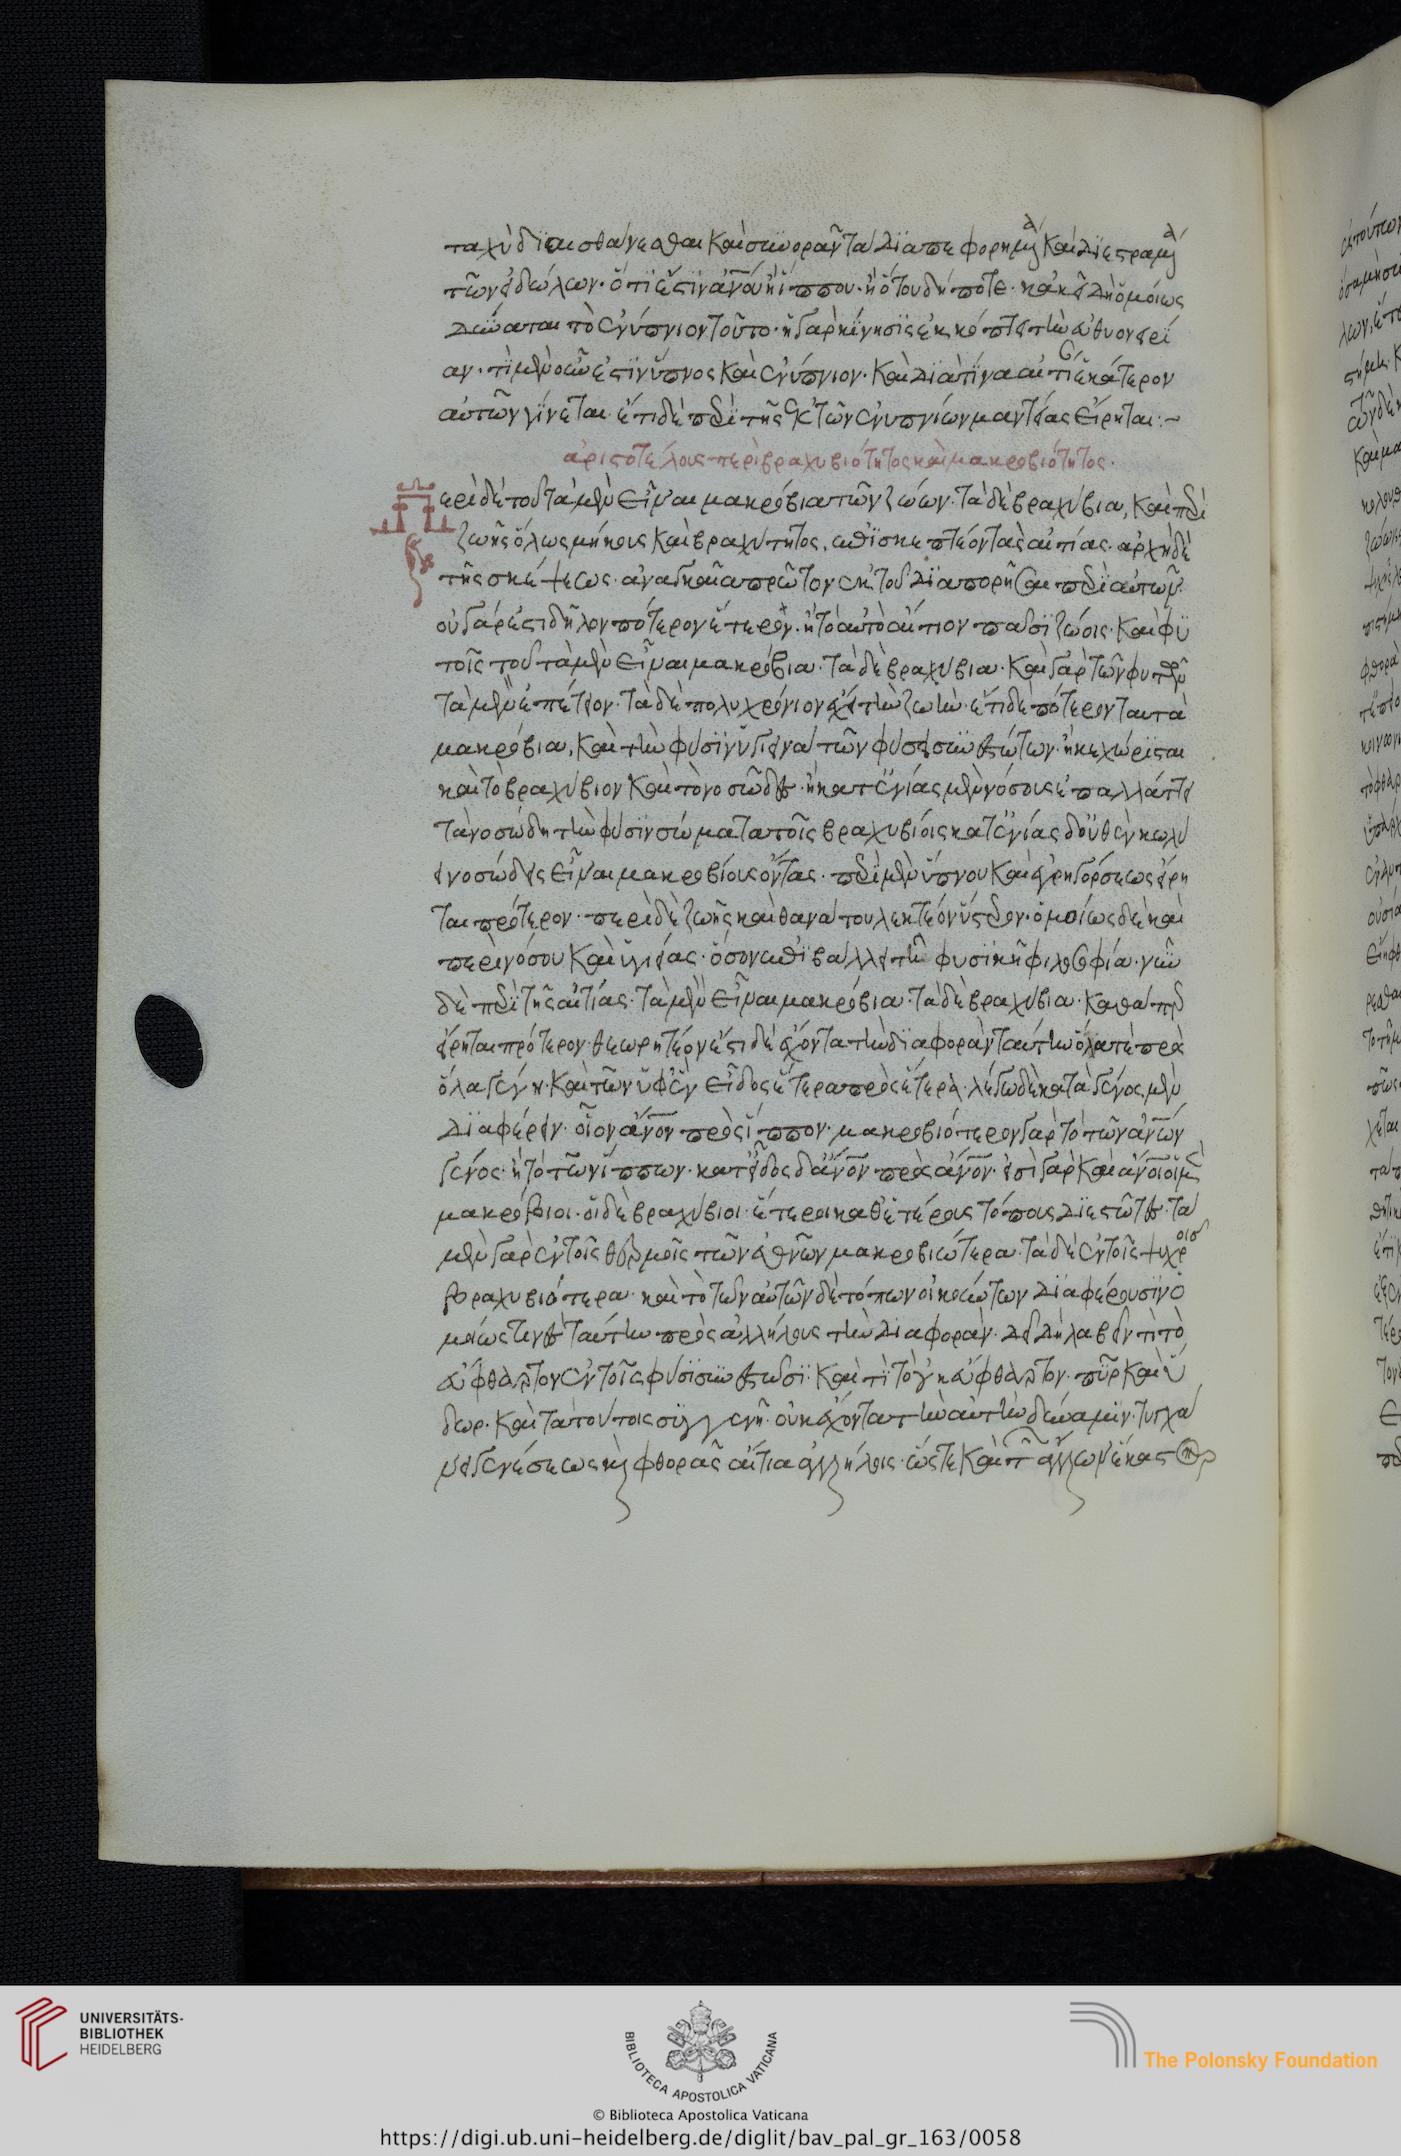 ταχὺ διαισθάνεσθαι καὶ συνορᾶν τὰ διαπεφορημένα καὶ διεστραμμένα
τῶν εἰδώλων· ὅτι ἐστὶν ἀνου ἢ ἵππου· ἢ ὅτου δήποτε· κἀκεῖ δὴ ὁμοίως
δύναται τὸ ἐνύπνιον τοῦτο· ἡ γὰρ κίνησις ἐκκόπτει τὴν εὐθυονειρί
αν· τί μὲν οὖν ἐστὶν ὕπνος καὶ ἐνύπνιον· καὶ διὰ τίνα αἰτίαν ἑκάτερον
αὐτῶν γίνεται· ἔτι δὲ περὶ τῆς ἐκ τῶν ἐνυπνίων μαντείας εἴρηται :–
ἀριστοτέλους περὶ βραχυβιότητος καὶ μακροβιότητος·
Περὶ δὲ τοῦ τὰ μὲν εἶναι μακρόβια τῶν ζώων· τὰ δὲ βραχύβια, καὶ περὶ
ζωῆς ὅλως μήκους καὶ βραχύτητος, ἐπισκεπτέον τὰς αἰτίας· ἀρχὴ δὲ
τῆς σκέψεως· ἀναγκαία πρῶτον ἐκ τοῦ διαπορῆσαι περὶ αὐτῶν·
οὐ γάρ ἐστι δῆλον πότερον ἕτερον· ἢ τὸ αὐτὸ αἴτιον πᾶσι ζώοις· καὶ φυ
τοῖς τοῦ τὰ μὲν εἶναι μακρόβια· τὰ δὲ βραχύβια· καὶ γὰρ τῶν φυτῶν
τὰ μὲν ἐπέτειον· τὰ δὲ πολυχρόνιον ἔχει τὴν ζωήν· ἔτι δὲ πότερον ταυτὰ
μακρόβια, καὶ τὴν φύσιν ὑγιεινὰ τῶν φύσει συνεστώτων· ἢ κεχώρισται
καὶ τὸ βραχύβιον καὶ τὸ νοσῶδες· ἢ κατ' ἐνίας μὲν νόσους ἐπαλλάττει
τὰ νοσώδη τὴν φύσιν σώματα τοῖς βραχυβίοις κατ' ἐνίας δ' οὐθὲν κωλύ
ει νοσώδεις εἶναι μακροβίους ὄντας· περὶ μὲν ὕπνου καὶ ἐγρηγόρσεως εἴρη
ται πρότερον· περὶ δὲ ζωῆς καὶ θανάτου λεκτέον ὕστερον· ὁμοίως δὲ καὶ
περὶ νόσου καὶ ὑγιείας· ὅσον ἐπιβάλλει τῆ φυσικῆ φιλοσοφία· νῦν
δὲ περὶ τῆς αἰτίας· τὰ μὲν εἶναι μακρόβια· τὰ δὲ βραχύβια· καθάπερ
εἴρηται πρότερον· θεωρητέον ἔστι δὲ ἔχοντα τὴν διαφορὰν ταύτην ὅλα τε πρὸς
ὅλα γένη· καὶ τῶν ὑφ' ἓν εἶδος ἕτερα πρὸς ἕτερα· λέγω δὲ κατὰ γένος μὲν
διαφέρειν· οἷον ἄνον πρὸς ἵππον· μακροβιότερον γὰρ τὸ τῶν ἀνων
γένος· ἢ τὸ τῶν ἵππων· κατ' εἶδος δ' ἄνον πρὸς ἄνον· εἰσὶ γὰρ καὶ ἄνοι οἱ μὲν
μακρόβιοι· οἱ δὲ βραχύβιοι· ἕτεροι καθ' ἑτέρους τόπους διεστῶτες· τὰ
μὲν γὰρ ἐν τοῖς θερμοῖς τῶν ἐθνῶν μακροβιώτερα· τὰ δὲ ἐν τοῖς ψυχροῖς
βραχυβιότερα· καὶ τὸ τῶν αὐτῶν δὲ τόπων οἰκούντων διαφέρουσιν ὁ
μοίως τινὲς ταύτην πρὸς ἀλλήλους τὴν διαφοράν· δεῖ δὴ λαβεῖν τί τὸ
εὔφθαρτον ἐν τοῖς φύσει συνεστῶσι· καὶ τί τὸ οὐκ εὔφθαρτον· πῦρ καὶ ὕ
δωρ· καὶ τὰ τούτοις συγγενῆ· οὐκ ἔχοντα τὴν αὐτὴν δύναμιν· τυγχά
νει γενέσεως καὶ φθορᾶς αἴτια ἀλλήλοις· ὥστε καὶ τῶν ἄλλων ἕκαστον
UNIVERSITÄTS-
BIBLIOTHEK
HEIDELBERG
BIBLIOTECA APOSTOLICA VATICANA
© Biblioteca Apostolica Vaticana
The Polonsky Foundation
https://digi.ub.uni-heidelberg.de/diglit/bav_pal_gr_163/0058